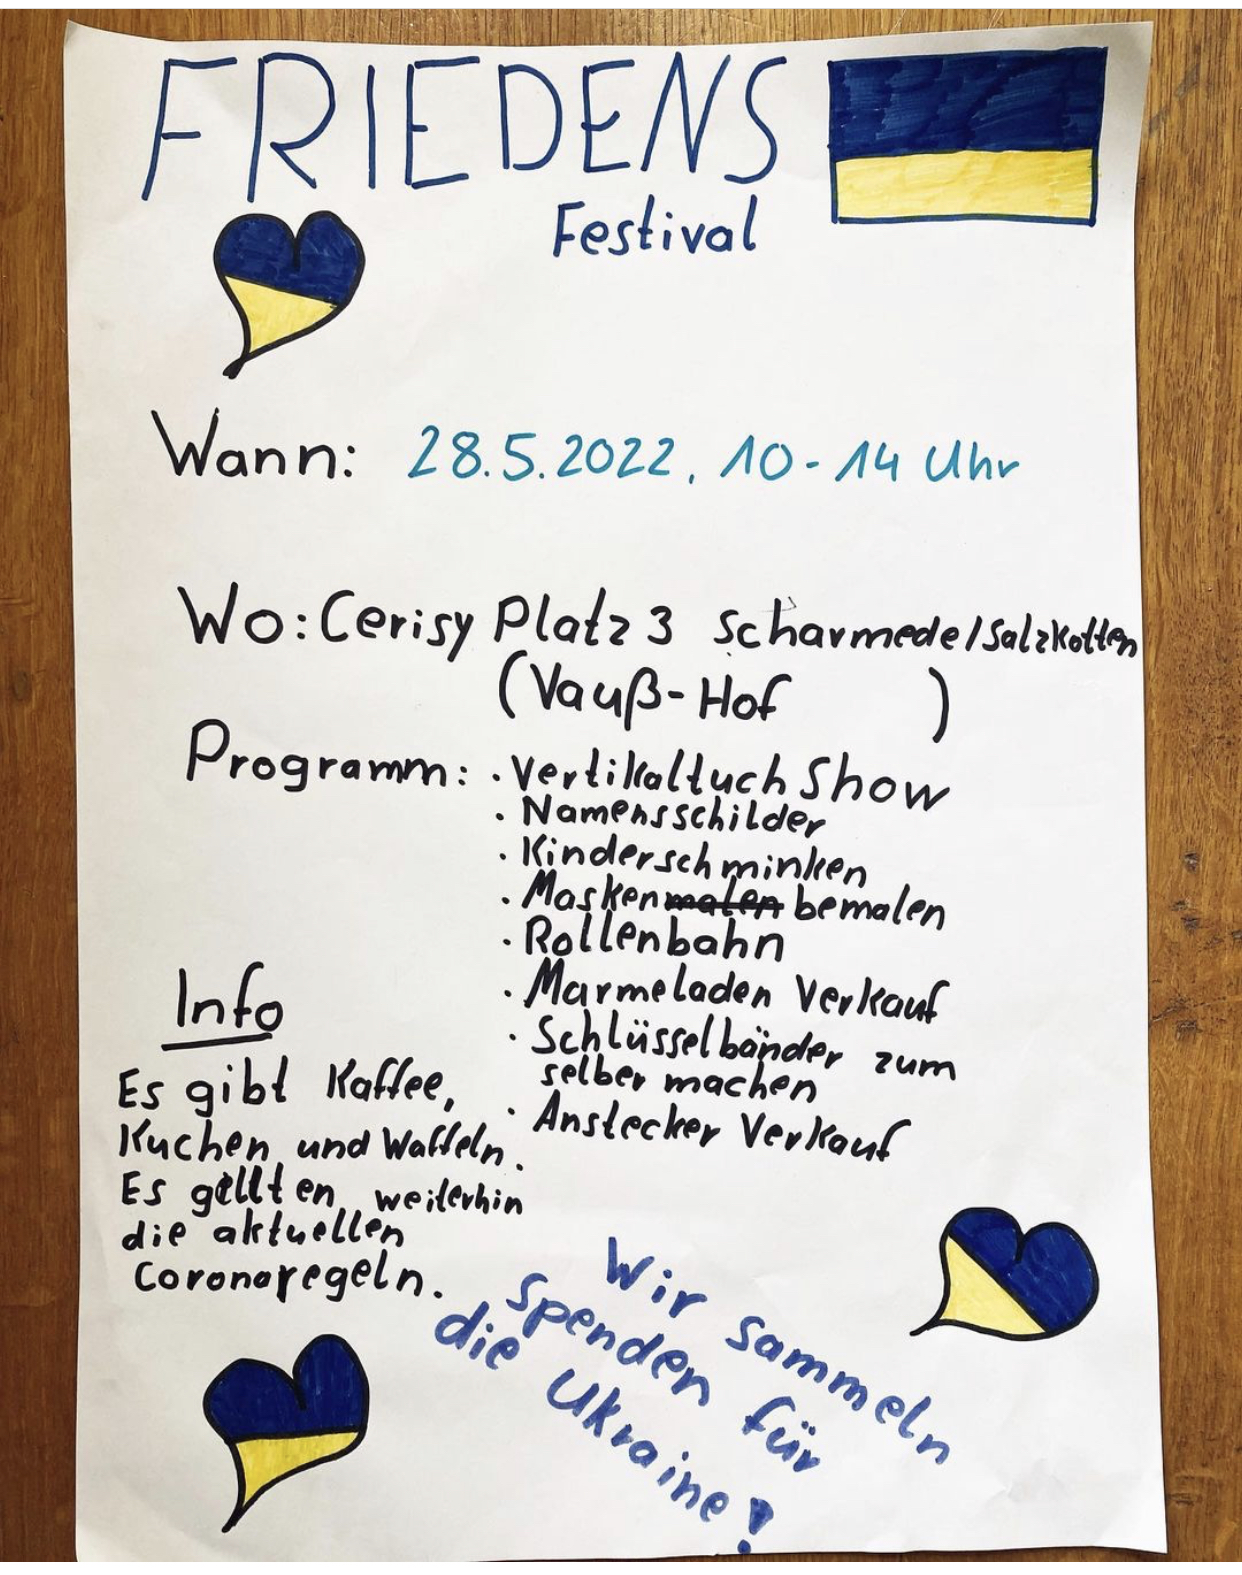 FRIEDENS
Festival
Wann: 28.5.2022, 10-14 Uhr
Wo: Cerisy Platz 3 Scharmede/Salzkotten
(Vauß-Hof )
Programm: · Vertikaltuch Show
· Namensschilder
· Kinderschminken
· Masken malen bemalen
· Rollenbahn
· Marmeladen Verkauf
· Schlüsselbänder zum
selber machen
· Anstecker Verkauf
Info
Es gibt Kaffee,
Kuchen und Waffeln.
Es gellten weiterhin
die aktuellen
Coronaregeln.
Wir sammeln
Spenden für
die Ukraine!